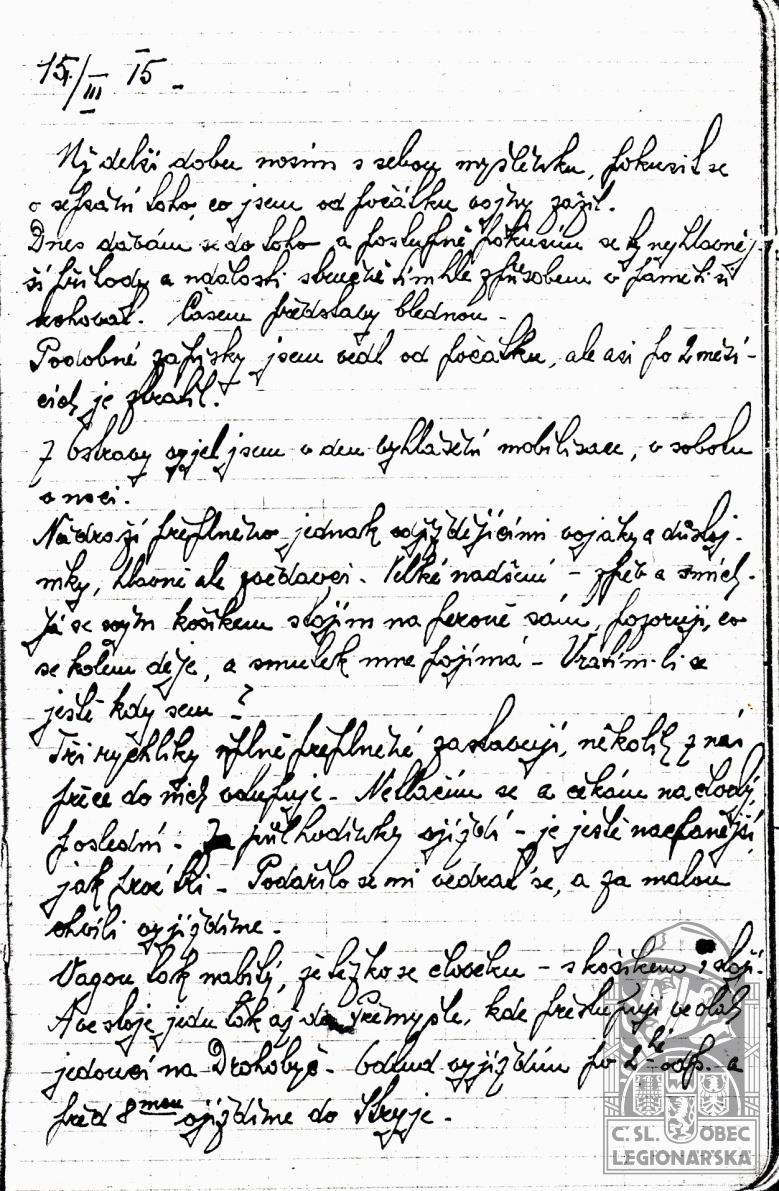 15/III 15 -
Již delší dobu nosím s sebou myšlénku, pokusit se
o sepsání toho, co jsem od počátku vojny zažil.
Dnes dávám se do toho a postupně pokusím se ty nejhlavněj-
ší příhody a události stručně tímhle způsobem v paměti si
uchovat. Časem představy blednou -
Podobné zápisky jsem vedl od počátku, ale asi po 2 měsí-
cích je ztratil.
Z Ostravy vyjel jsem v den vyhlášení mobilisace, v sobotu
v noci.
Nádraží přeplněno jednak odjíždějícími vojáky a důstoj-
níky, hlavně ale zvědavci. Velké nadšení - zpěv a smích.
Já se svým košíkem stojím na peroně sám, pozoruji, co
se kolem děje, a smutek mne pojímá - Vrátím-li se
ještě kdy sem?
Tři rychlíky úplně přeplněné zastavují, několik z nás
přece do nich vstupuje. Netlačím se a čekám na čtvrtý,
poslední. Za půlhodinky vjíždí - je ještě nacpanější
jak prvé tři - Podařilo se mi vedrat se, a za malou
chvíli vyjíždíme -
Vagon tak nabitý, že těžko se člověku - s košíkem i stojí.
A ve stoje jedu tak až do Přemyšle, kde přestupuji ve vlak
jedoucí na Drohobyč. Odtud vyjíždím po 2hé odp. a
před 8mou vjíždíme do Stryje.
C. SL. OBEC
LEGIONÁŘSKÁ